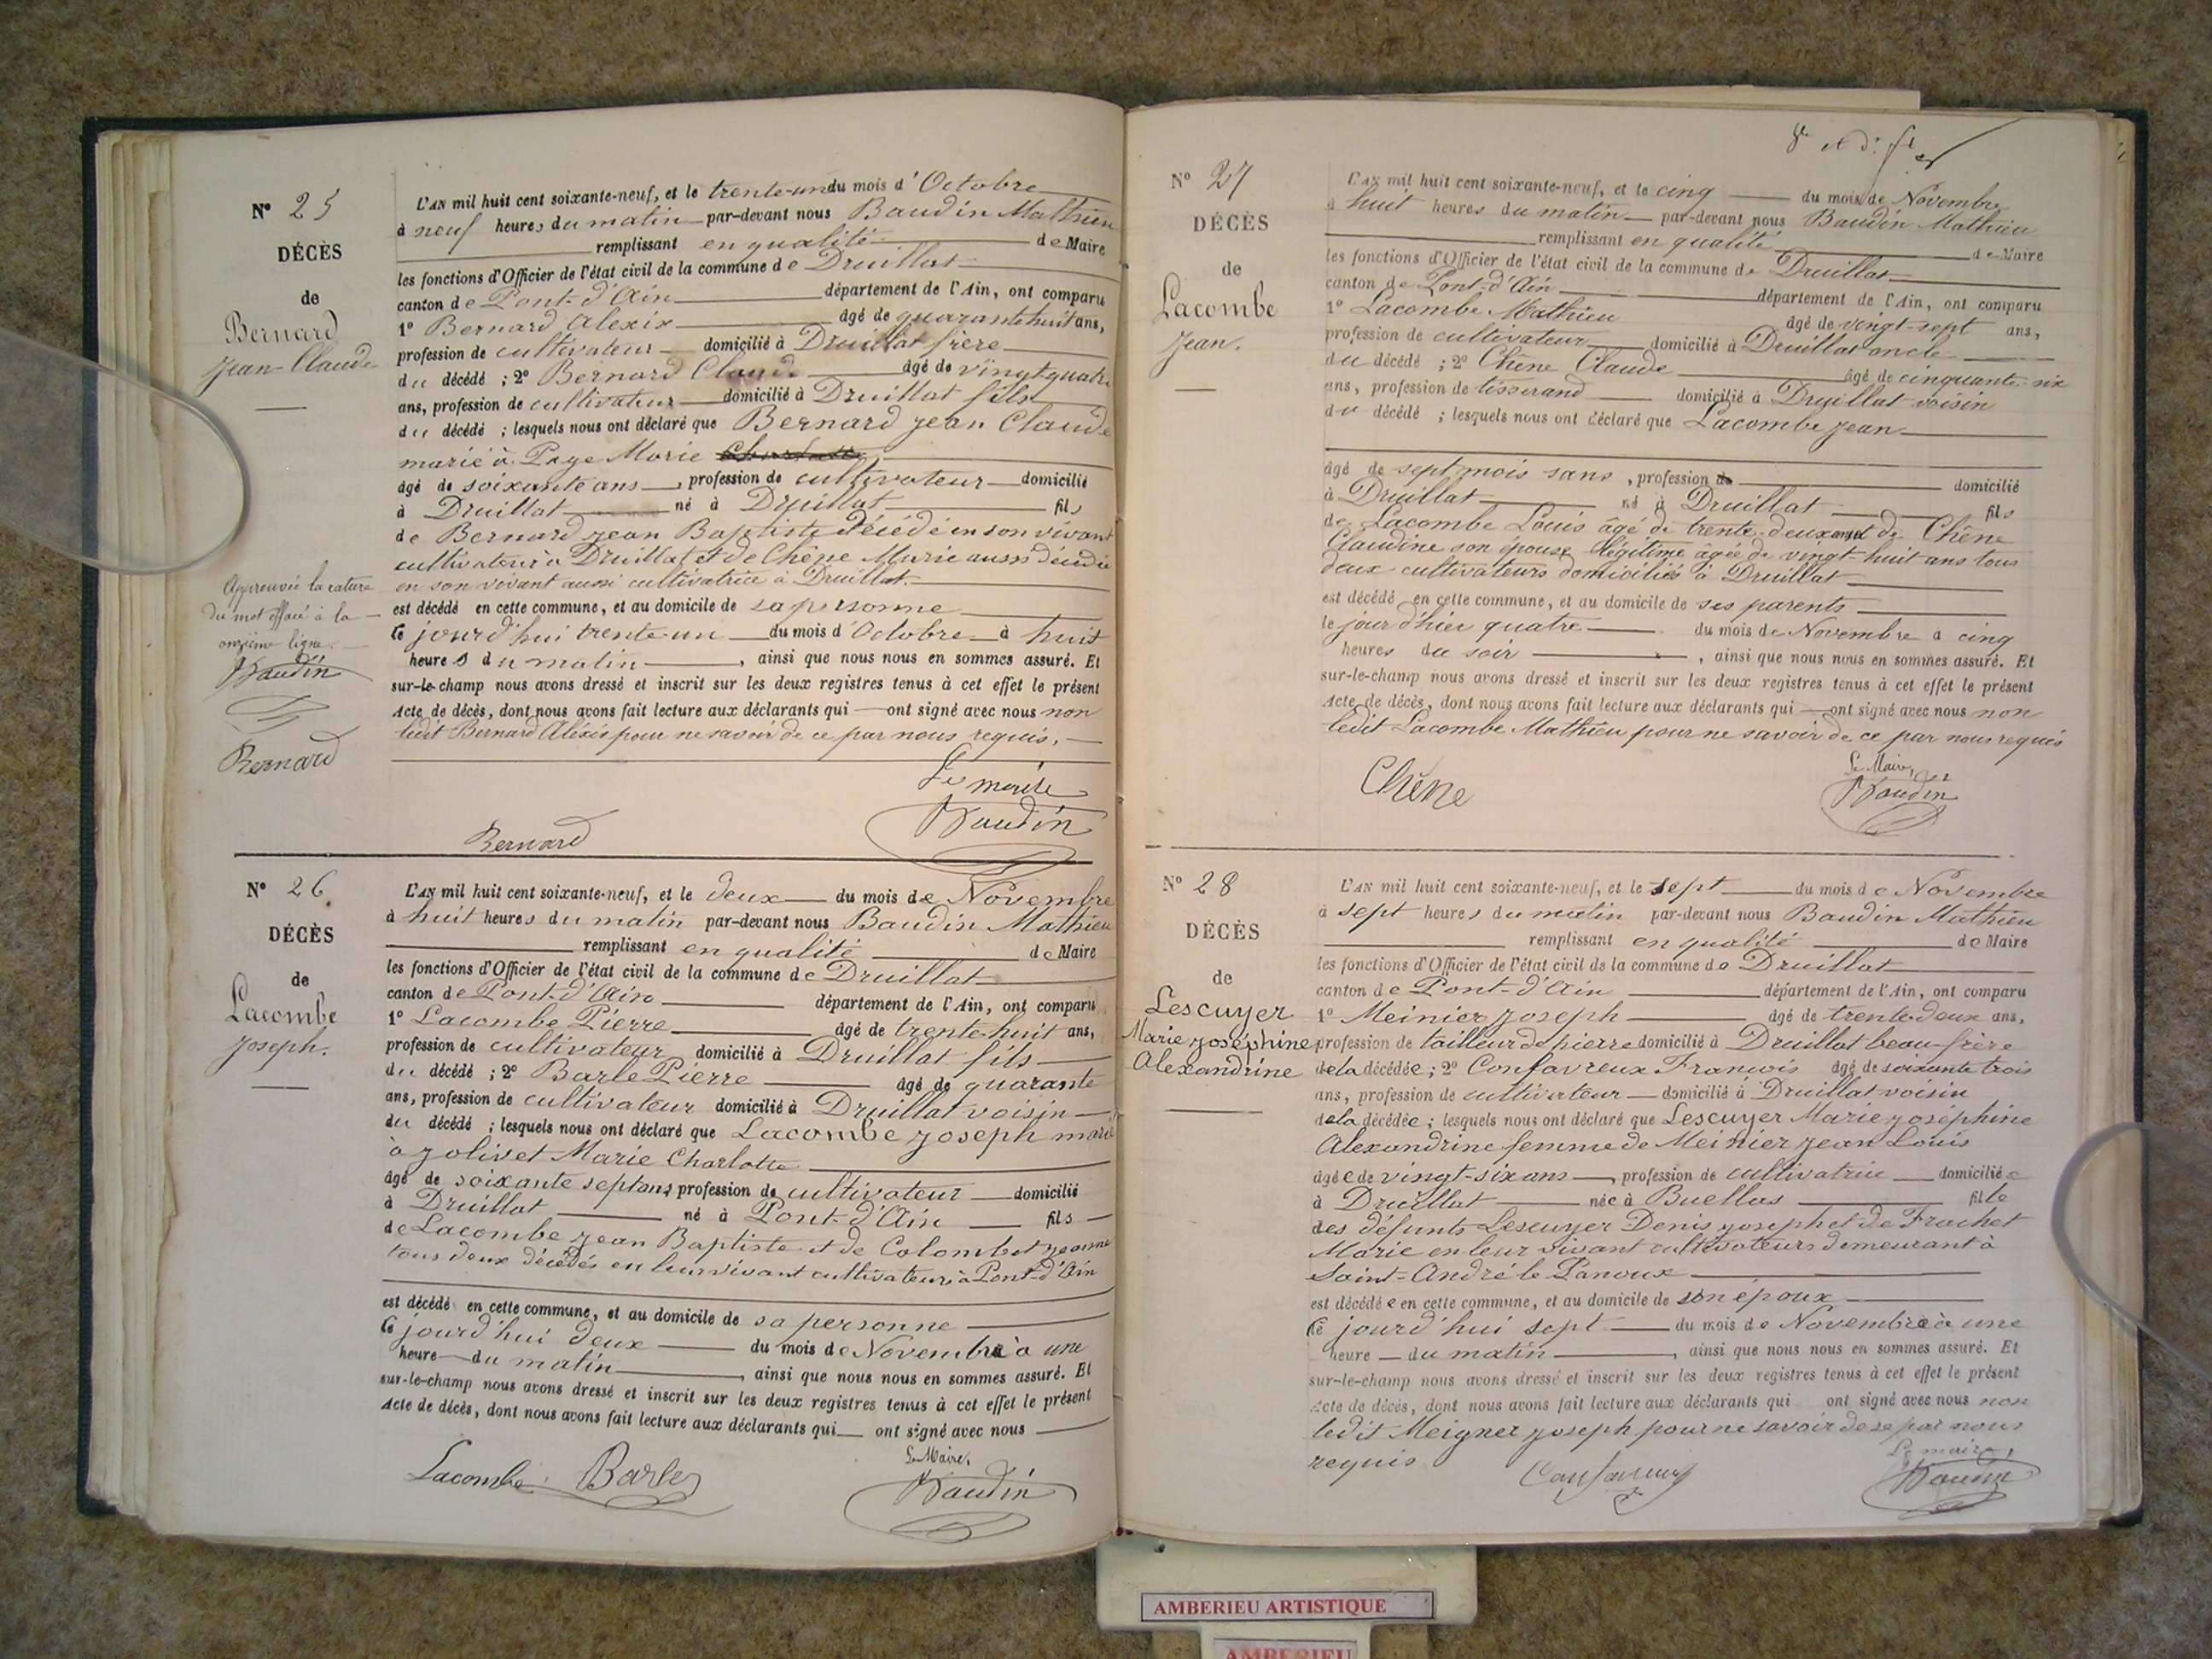 N° 25
DÉCÈS
de
Bernard
Jean-Claude
L'AN mil huit cent soixante-neuf, et le trente-un du mois d'Octobre
à neuf heures du matin par-devant nous Baudin Mathieu
remplissant en qualité de Maire
les fonctions d'Officier de l'état civil de la commune de Druillat
canton de Pont-d'Ain département de l'Ain, ont comparu
1° Bernard Alexis âgé de quarante huit ans,
profession de cultivateur domicilié à Druillat frère
du décédé ; 2° Bernard Claude âgé de vingt quatre
ans, profession de cultivateur domicilié à Druillat fils
du décédé ; lesquels nous ont déclaré que Bernard Jean Claude
marié à Page Marie
âgé de soixante ans, profession de cultivateur domicilié
à Druillat né à Druillat fils
de Bernard Jean Baptiste décédé en son vivant
cultivateur à Druillat et de Chêne Marie aussi décédée
en son vivant aussi cultivatrice à Druillat
est décédé en cette commune, et au domicile de sa personne
le jourd'hui trente-un du mois d'Octobre à huit
heures du matin, ainsi que nous nous en sommes assuré. Et
sur-le-champ nous avons dressé et inscrit sur les deux registres tenus à cet effet le présent
Acte de décès, dont nous avons fait lecture aux déclarants qui ont signé avec nous non
ledit Bernard Aléxis pour ne savoir de ce par nous requis.
Approuvée la rature
du mot effacé à la
onzième ligne.
Baudin
Bernard
Le maire
Baudin
Bernard
N° 26
DÉCÈS
de
Lacombe
Joseph.
L'AN mil huit cent soixante-neuf, et le deux du mois de Novembre
à huit heures du matin par-devant nous Baudin Mathieu
remplissant en qualité de Maire
les fonctions d'Officier de l'état civil de la commune de Druillat
canton de Pont-d'Ain département de l'Ain, ont comparu
1° Lacombe Pierre âgé de trente-huit ans,
profession de cultivateur domicilié à Druillat fils
du décédé ; 2° Barle Pierre âgé de quarante
ans, profession de cultivateur domicilié à Druillat voisin
du décédé ; lesquels nous ont déclaré que Lacombe Joseph marié
à Jolivet Marie Charlotte
âgé de soixante sept ans, profession de cultivateur domicilié
à Druillat né à Pont-d'Ain fils
de Lacombe Jean Baptiste et de Colombet Jeanne
tous deux décédés en leur vivant cultivateurs à Pont-d'Ain
est décédé en cette commune, et au domicile de sa personne
le jourd'hui deux du mois de Novembre à une
heure du matin, ainsi que nous nous en sommes assuré. Et
sur-le-champ nous avons dressé et inscrit sur les deux registres tenus à cet effet le présent
Acte de décès, dont nous avons fait lecture aux déclarants qui ont signé avec nous
Le Maire,
Lacombe Barle Baudin
N° 27
DÉCÈS
de
Lacombe
Jean.
L'AN mil huit cent soixante-neuf, et le cinq du mois de Novembre
à huit heures du matin par-devant nous Baudin Mathieu
remplissant en qualité de Maire
les fonctions d'Officier de l'état civil de la commune de Druillat
canton de Pont-d'Ain département de l'Ain, ont comparu
1° Lacombe Mathieu âgé de vingt-sept ans,
profession de cultivateur domicilié à Druillat oncle
du décédé ; 2° Chêne Claude âgé de cinquante-six
ans, profession de tisserand domicilié à Druillat voisin
du décédé ; lesquels nous ont déclaré que Lacombe Jean
âgé de sept mois sans, profession de domicilié
à Druillat né à Druillat fils
de Lacombe Louis âgé de trente-deux ans et de Chêne
Claudine son épouse légitime âgée de vingt-huit ans tous
deux cultivateurs domiciliés à Druillat
est décédé en cette commune, et au domicile de ses parents
le jour d'hier quatre du mois de Novembre à cinq
heures du soir, ainsi que nous nous en sommes assuré. Et
sur-le-champ nous avons dressé et inscrit sur les deux registres tenus à cet effet le présent
Acte de décès, dont nous avons fait lecture aux déclarants qui ont signé avec nous non
ledit Lacombe Mathieu pour ne savoir de ce par nous requis
Le Maire,
Chêne Baudin
N° 28
DÉCÈS
de
Lescuyer
Marie Joséphine
Alexandrine
L'AN mil huit cent soixante-neuf, et le sept du mois de Novembre
à sept heures du matin par-devant nous Baudin Mathieu
remplissant en qualité de Maire
les fonctions d'Officier de l'état civil de la commune de Druillat
canton de Pont-d'Ain département de l'Ain, ont comparu
1° Meinier Joseph âgé de trente-deux ans,
profession de tailleur de pierre domicilié à Druillat beau-frère
de la décédée ; 2° Confavreux François âgé de soixante trois
ans, profession de cultivateur domicilié à Druillat voisin
de la décédée ; lesquels nous ont déclaré que Lescuyer Marie Joséphine
Alexandrine femme de Meinier Jean Louis
âgée de vingt-six ans, profession de cultivatrice domiciliée
à Druillat née à Buellas fille
des défunts Lescuyer Denis Joseph et de Frachet
Marie en leur vivant cultivateurs demeurant à
Saint-André le Panoux
est décédée en cette commune, et au domicile de son époux
le jourd'hui sept du mois de Novembre à une
heure du matin, ainsi que nous nous en sommes assuré. Et
sur-le-champ nous avons dressé et inscrit sur les deux registres tenus à cet effet le présent
Acte de décès, dont nous avons fait lecture aux déclarants qui ont signé avec nous non
ledit Meigner Joseph pour ne savoir de se par nous
requis
Le maire,
Confavreux Baudin
AMBERIEU ARTISTIQUE
AMBERIEU